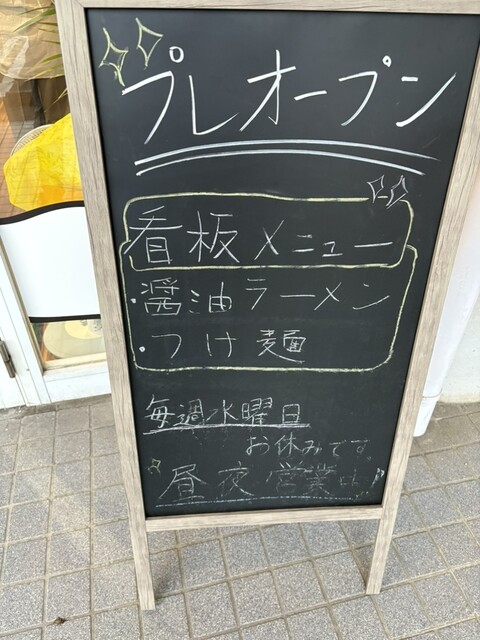 プレオープン
看板メニュー
・醤油ラーメン
・つけ麺
毎週水曜日
お休みです。
昼夜営業中